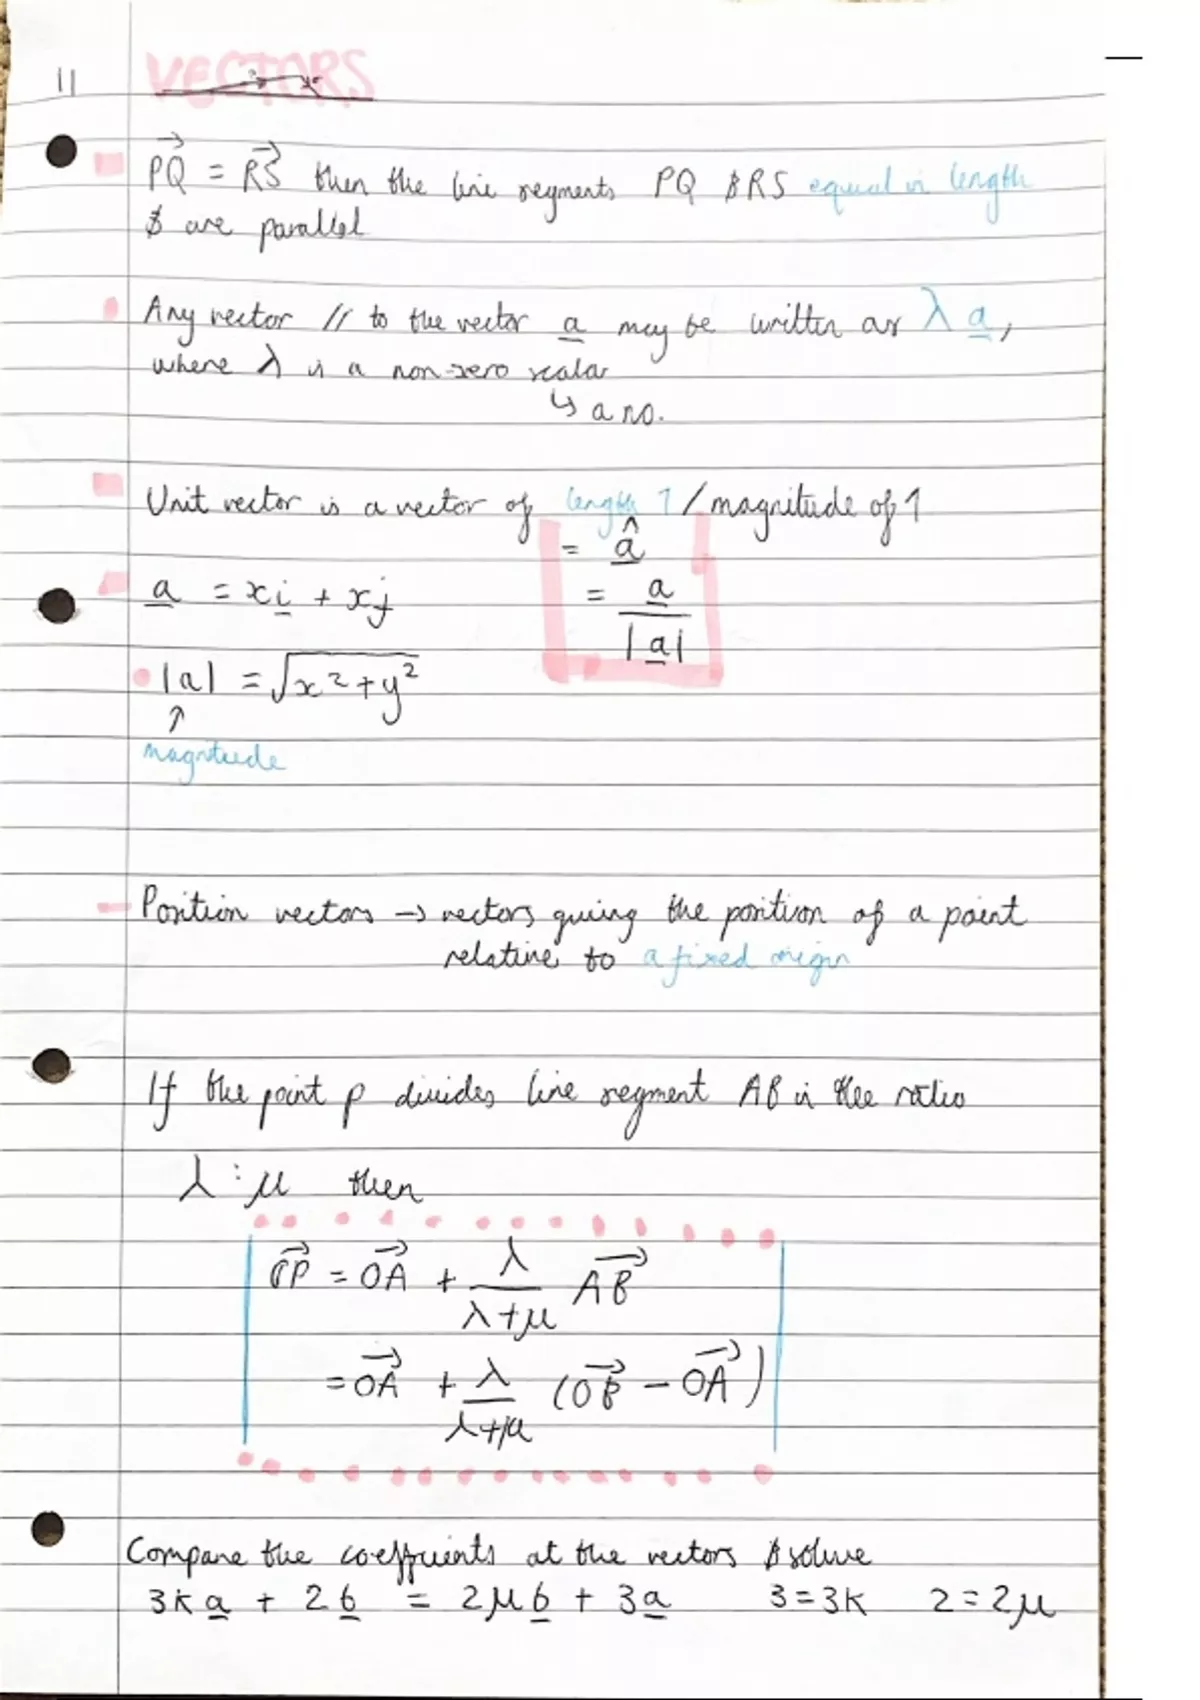 11 VECTORS
PQ = RS then the line segments PQ & RS equal in length
& are parallel
Any vector // to the vector a may be written as λ a,
where λ is a non-zero scalar
↳ a no.
Unit vector is a vector of length 1 / magnitude of 1
= â
a = xi + xj
= a / |a|
|a| = √x²+y²
↑
magnitude
Position vectors → vectors giving the position of a point
relative to a fixed origin
If the point p divides line segment AB in the ratio
λ : μ then
OP = OA + λ/(λ+μ) AB
= OA + λ/(λ+μ) (OB - OA)
Compare the coefficients at the vectors & solve
3ka + 2b = 2μb + 3a 3=3k 2=2μ